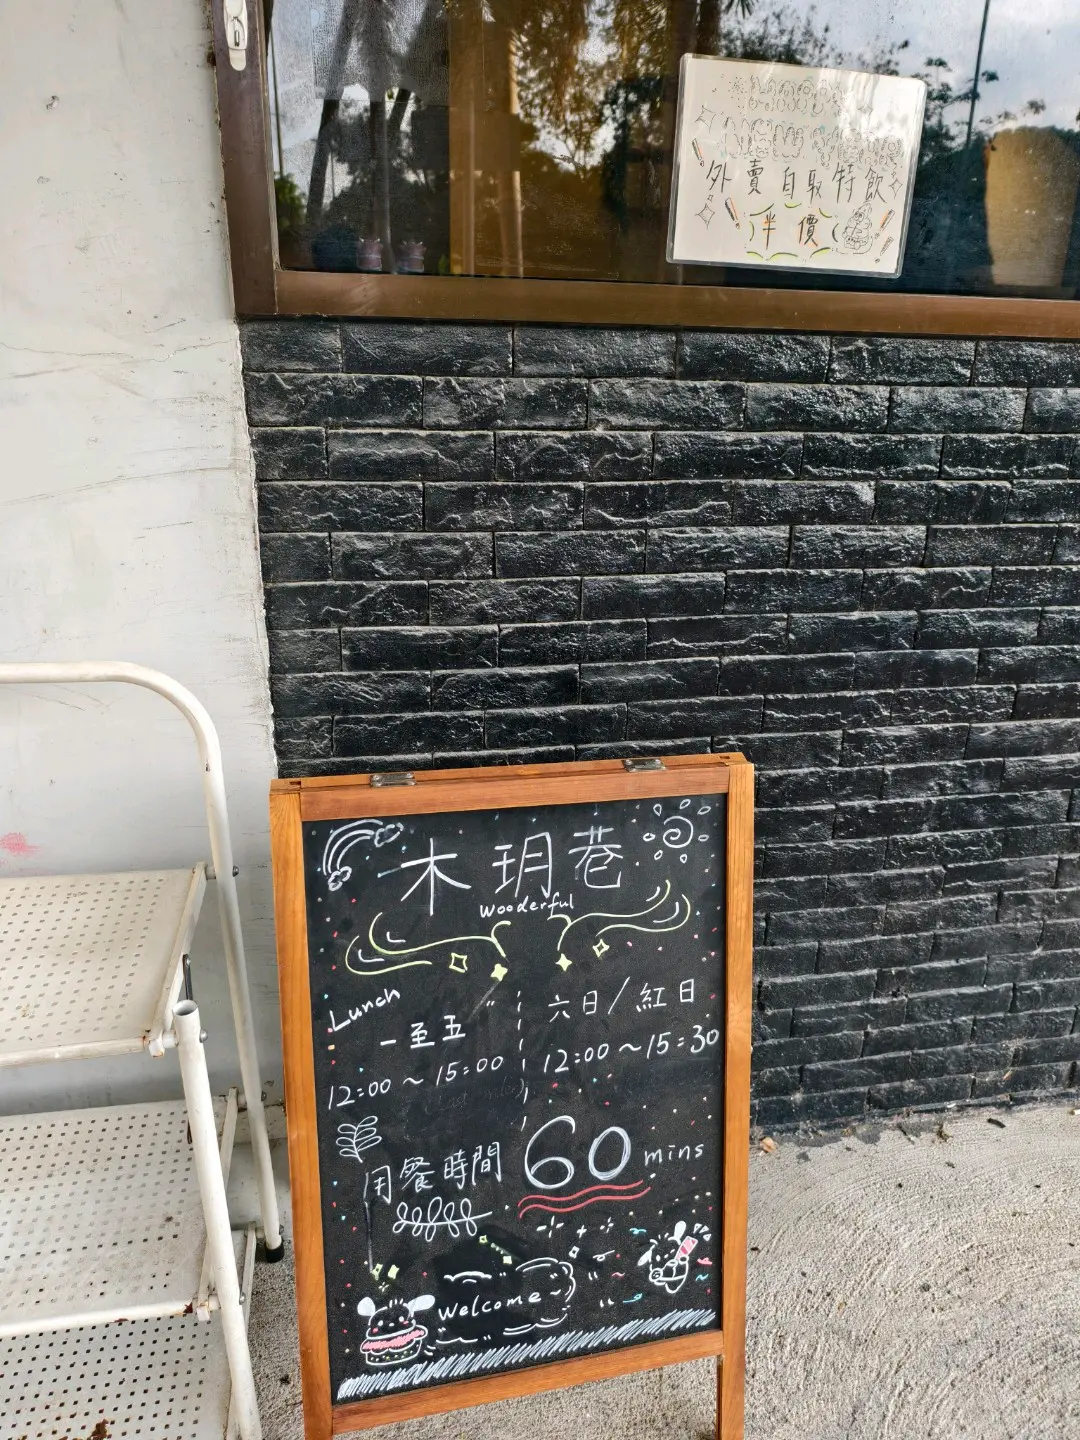 外賣自取特飲
半價
木玥巷
wooderful
Lunch
一至五
12:00 ~ 15:00
六日/紅日
12:00 ~ 15:30
用餐時間 60 mins
Welcome